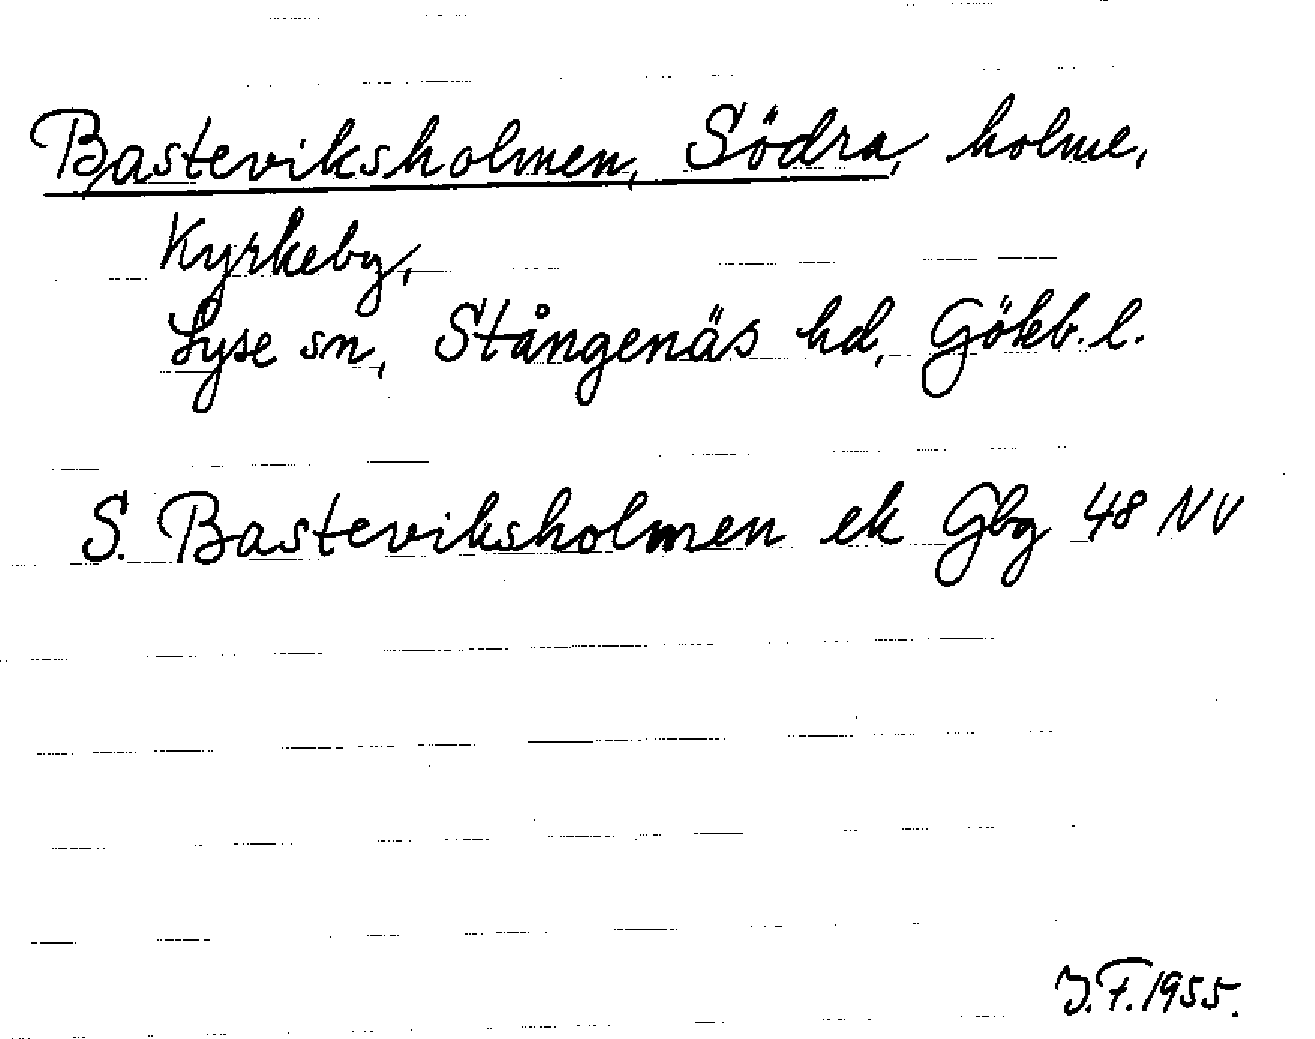 Basteviksholmen, Södra, holme,
Kyrkeby,
Lyse sn, Stångenäs hd, Gökb. l.
S. Basteviksholmen ek Gbg 48 NV
J.F. 1955.